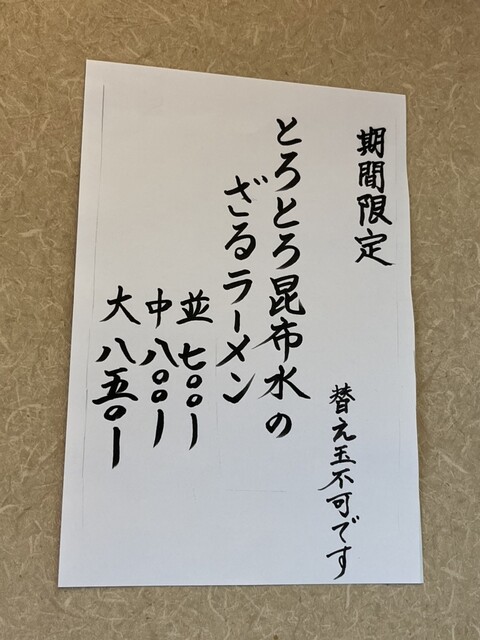 期間限定
替え玉不可です
とろとろ昆布水の
ざるラーメン
並 七〇〇ー
中 八〇〇ー
大 八五〇ー